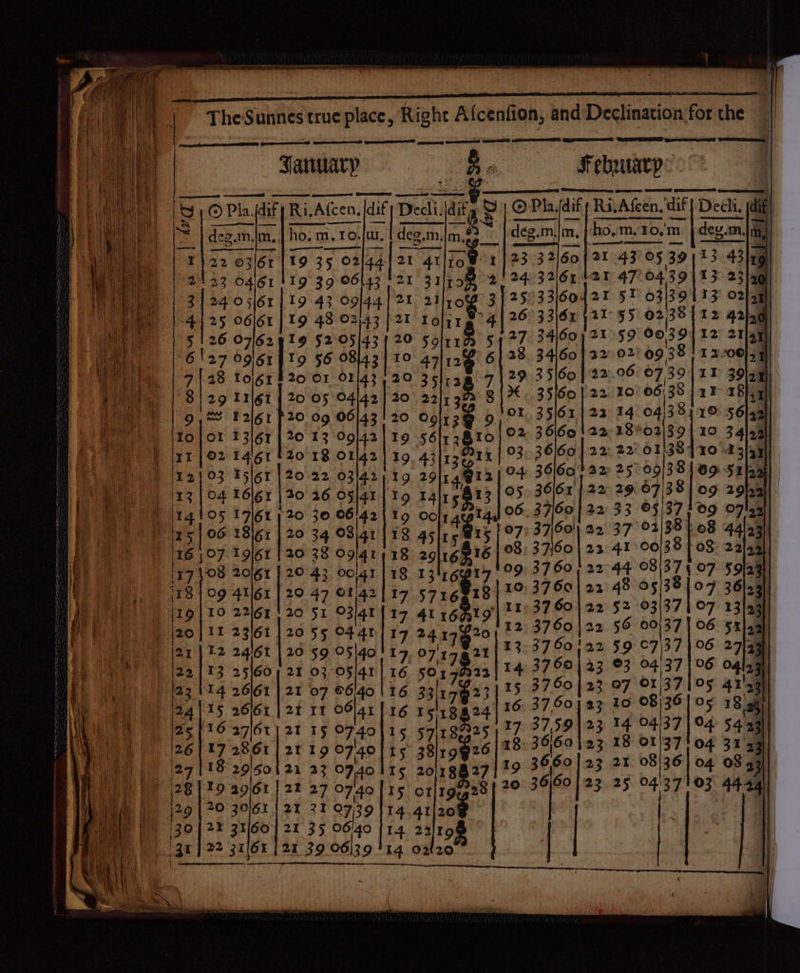 The Sunnes true place, Right Ascension, and Declination for the
January & February
D | ☉ Pla. | dif | Ri. Ascen. | dif | Decli. | dif | D | ☉ Pla. | dif | Ri. Ascen. | dif | Decli. | dif
deg.m. | m. | ho. m. 10. | m. | deg.m. | m. | deg.m. | m. | ho. m. 10. | m | deg.m. | m.
1 | 22 03 | 61 | 19 35 02 | 44 | 21 41 | 10 | 1 | 23 32 | 60 | 21 43 05 | 39 | 13 43 | 19
2 | 23 04 | 61 | 19 39 06 | 43 | 21 31 | 10 | 2 | 24 32 | 61 | 21 47 04 | 39 | 13 23 | 20
3 | 24 05 | 61 | 19 43 09 | 44 | 21 21 | 10 | 3 | 25 33 | 60 | 21 51 03 | 39 | 13 02 | 21
4 | 25 06 | 61 | 19 48 02 | 43 | 21 10 | 11 | 4 | 26 33 | 61 | 21 55 02 | 38 | 12 42 | 20
5 | 26 07 | 62 | 19 52 05 | 43 | 20 59 | 11 | 5 | 27 34 | 60 | 21 59 00 | 39 | 12 21 | 21
6 | 27 09 | 61 | 19 56 08 | 43 | 10 47 | 12 | 6 | 28 34 | 60 | 22 02 09 | 38 | 12 00 | 21
7 | 28 10 | 61 | 20 01 01 | 43 | 20 35 | 12 | 7 | 29 35 | 60 | 22 06 07 | 39 | 11 39 | 21
8 | 29 11 | 61 | 20 05 04 | 42 | 20 22 | 13 | 8 | ♓ 35 | 60 | 22 10 06 | 38 | 11 18 | 21
9 | ♒ 12 | 61 | 20 09 06 | 43 | 20 09 | 13 | 9 | 01 35 | 61 | 22 14 04 | 38 | 10 56 | 22
10 | 01 13 | 61 | 20 13 09 | 42 | 19 56 | 13 | 10 | 02 36 | 60 | 22 18 02 | 39 | 10 34 | 22
11 | 02 14 | 61 | 20 18 01 | 42 | 19 43 | 13 | 11 | 03 36 | 60 | 22 22 01 | 38 | 10 13 | 21
12 | 03 15 | 61 | 20 22 03 | 42 | 19 29 | 14 | 12 | 04 36 | 60 | 22 25 09 | 38 | 09 51 | 22
13 | 04 16 | 61 | 20 26 05 | 41 | 19 14 | 15 | 13 | 05 36 | 61 | 22 29 07 | 38 | 09 29 | 22
14 | 05 17 | 61 | 20 30 06 | 42 | 19 00 | 14 | 14 | 06 37 | 60 | 22 33 05 | 37 | 09 07 | 22
15 | 06 18 | 61 | 20 34 08 | 41 | 18 45 | 15 | 15 | 07 37 | 60 | 22 37 02 | 38 | 08 44 | 23
16 | 07 19 | 61 | 20 38 09 | 41 | 18 29 | 16 | 16 | 08 37 | 60 | 22 41 00 | 38 | 08 22 | 22
17 | 08 20 | 61 | 20 43 00 | 41 | 18 13 | 16 | 17 | 09 37 | 60 | 22 44 08 | 37 | 07 59 | 23
18 | 09 41 | 61 | 20 47 01 | 42 | 17 57 | 16 | 18 | 10 37 | 60 | 22 48 05 | 38 | 07 36 | 23
19 | 10 22 | 61 | 20 51 03 | 41 | 17 41 | 16 | 19 | 11 37 | 60 | 22 52 03 | 37 | 07 13 | 23
20 | 11 23 | 61 | 20 55 04 | 41 | 17 24 | 17 | 20 | 12 37 | 60 | 22 56 00 | 37 | 06 51 | 22
21 | 12 24 | 61 | 20 59 05 | 40 | 17 07 | 17 | 21 | 13 37 | 60 | 22 59 07 | 37 | 06 27 | 23
22 | 13 25 | 60 | 21 03 05 | 41 | 16 50 | 17 | 22 | 14 37 | 60 | 23 03 04 | 37 | 06 04 | 23
23 | 14 26 | 61 | 21 07 06 | 40 | 16 33 | 17 | 23 | 15 37 | 60 | 23 07 01 | 37 | 05 41 | 23
24 | 15 26 | 61 | 21 11 06 | 41 | 16 15 | 18 | 24 | 16 37 | 60 | 23 10 08 | 36 | 05 18 | 23
25 | 16 27 | 61 | 21 15 07 | 40 | 15 57 | 18 | 25 | 17 37 | 59 | 23 14 04 | 37 | 04 54 | 23
26 | 17 28 | 61 | 21 19 07 | 40 | 15 38 | 19 | 26 | 18 36 | 60 | 23 18 01 | 37 | 04 31 | 23
27 | 18 29 | 50 | 21 23 07 | 40 | 15 20 | 18 | 27 | 19 36 | 60 | 23 21 08 | 36 | 04 08 | 23
28 | 19 29 | 61 | 21 27 07 | 40 | 15 01 | 19 | 28 | 20 36 | 60 | 23 25 04 | 37 | 03 44 | 24
29 | 20 30 | 61 | 21 31 07 | 39 | 14 41 | 20
30 | 21 31 | 60 | 21 35 06 | 40 | 14 22 | 19
31 | 22 31 | 61 | 21 39 06 | 39 | 14 02 | 20